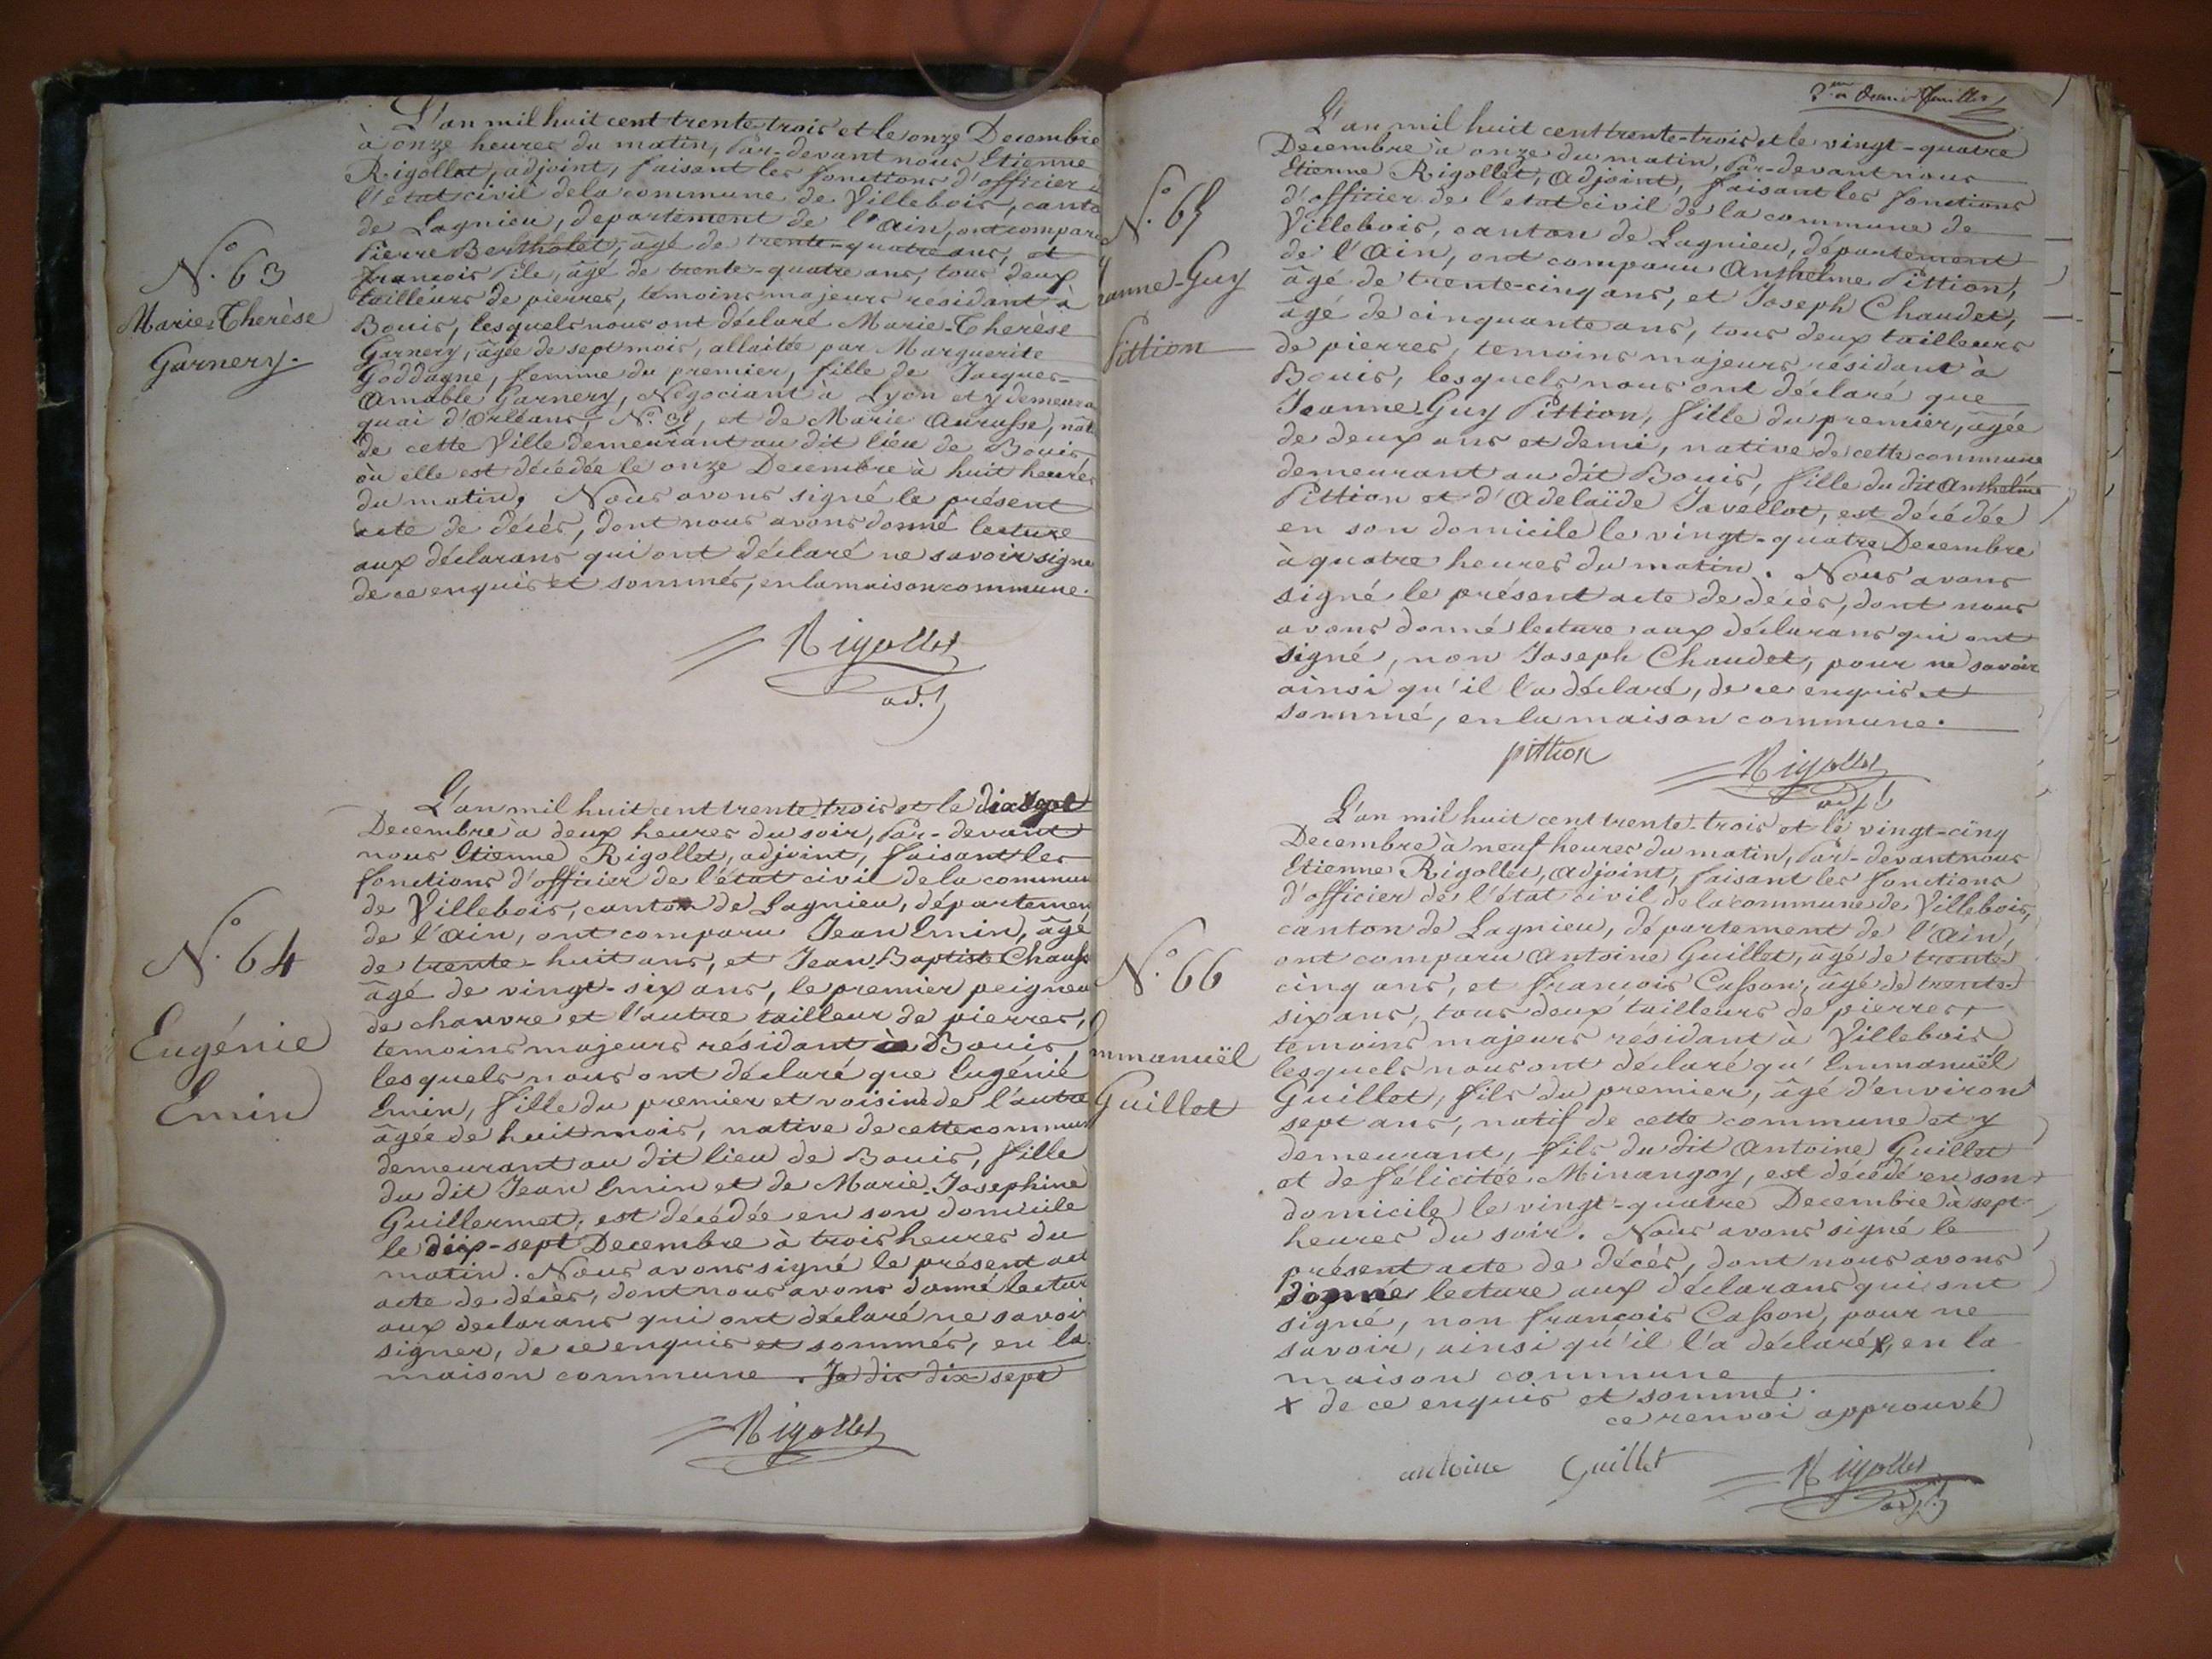 N.o 63
Marie-Therèse
Garnery.
L'an mil huit cent trente-trois et le onze Decembre
à onze heures du matin, Par-devant nous Etienne
Rigollet, adjoint, faisant les fonctions d'officier
l'état civil de la commune de Villebois, canto
de Lagnieu, departement de l'Ain, ont comparu
Pierre Bertholet, âgé de trente-quatre ans, et
françois Pile, âgé de trente-quatre ans, tous deux
tailleurs de pierres, témoins majeurs résidant à
Bouis, lesquels nous ont déclaré Marie-Therèse
Garnery, âgée de sept mois, allaitée par Marguerite
Goddagne, femme du premier, fille de Jacques-
Amable Garnery, Négociant à Lyon et y demeura
quai d'Orléans, N.o 31, et de Marie Aurasse, nat
de cette Ville demeurant au dit lieu de Bouis
où elle est décédée le onze Decembre à huit heures
du matin. Nous avons signé le présent
acte de décès, dont nous avons donné lecture
aux déclarans qui ont déclaré ne savoir signe
de ce enquis et sommés, en la maison commune.
Rigollet
adj.
N.o 64
Eugénie
Emin
L'an mil huit cent trente-trois et le dix sept
Decembre à deux heures du soir, Par-devant
nous Etienne Rigollet, adjoint, faisant les
fonctions d'officier de l'état civil de la commun
de Villebois, canton de Lagnieu, départemen
de l'Ain, ont comparu Jean Emin, âgé
de trente-huit ans, et Jean-Baptiste
âgé de vingt-six ans, le premier peigneu
de chanvre et l'autre tailleur de pierres,
temoins majeurs résidant à Bouis,
lesquels nous ont déclaré que Eugénie
Emin, fille du premier et voisine de l'autre
âgée de huit mois, native de cette commun
demeurant au dit lieu de Bouis, fille
du dit Jean Emin et de Marie-Josephine
Guillermet, est décédée en son domicile
le dix-sept Decembre à trois heures du
matin. Nous avons signé le présent act
acte de décès, dont nous avons donné lectur
aux declarans qui ont déclaré ne savoir
signer, de ce enquis et sommés, en la
maison commune. Je dis dix sept
Rigollet
N.o 65
Jeanne-Guy
Pittion
L'an mil huit cent trente-trois et le vingt-quatre
Decembre à onze du matin, Par-devant nous
Etienne Rigollet, Adjoint, faisant les fonctions
d'officier de l'etat civil de la commune de
Villebois, canton de Lagnieu, département
de l'Ain, ont comparu Anthelme Pittion,
âgé de trente-cinq ans, et Joseph Chaudet,
âgé de cinquante ans, tous deux tailleurs
de pierres, temoins majeurs résidant à
Bouis, lesquels nous ont déclaré que
Jeanne-Guy Pittion, fille du premier, âgée
de deux ans et demi, native de cette commune
demeurant au dit Bouis, fille du dit Anthelme
Pittion et d'Adelaïde Javellot, est décédée
en son domicile le vingt-quatre Decembre
à quatre heures du matin. Nous avons
signé le présent acte de décès, dont nous
avons donné lecture aux déclarans qui ont
signé, non Joseph Chaudet, pour ne savoir
ainsi qu'il l'a déclaré, de ce enquis et
sommé, en la maison commune.
pittion
Rigollet
adj.t
N.o 66
mmanuël
Guillet
L'an mil huit cent trente-trois et le vingt-cinq
Decembre à neuf heures du matin, Par-devant nous
Etienne Rigollet, Adjoint, faisant les fonctions
d'officier de l'état civil de la commune de Villebois,
canton de Lagnieu, département de l'Ain,
ont comparu Antoine Guillet, âgé de trente-
cinq ans, et francois Casson, âgé de trente-
six ans, tous deux tailleurs de pierres,
temoins majeurs résidant à Villebois
lesquels nous ont déclaré qu'Emmanuël
Guillet, fils du premier, âgé d'environ
sept ans, natif de cette commune et y
demeurant, fils du dit Antoine Guillet
et de félicitée Minangoy, est décédé en son
domicile le vingt-quatre Decembre à sept
heures du soir. Nous avons signé le
présent acte de décès, dont nous avons
donné lecture aux déclarans qui ont
signé, non françois Casson, pour ne
savoir, ainsi qu'il l'a déclaré x, en la
maison commune
x de ce enquis et sommé.
ce renvoi approuvé
antoine Guillet
Rigollet
adj.t